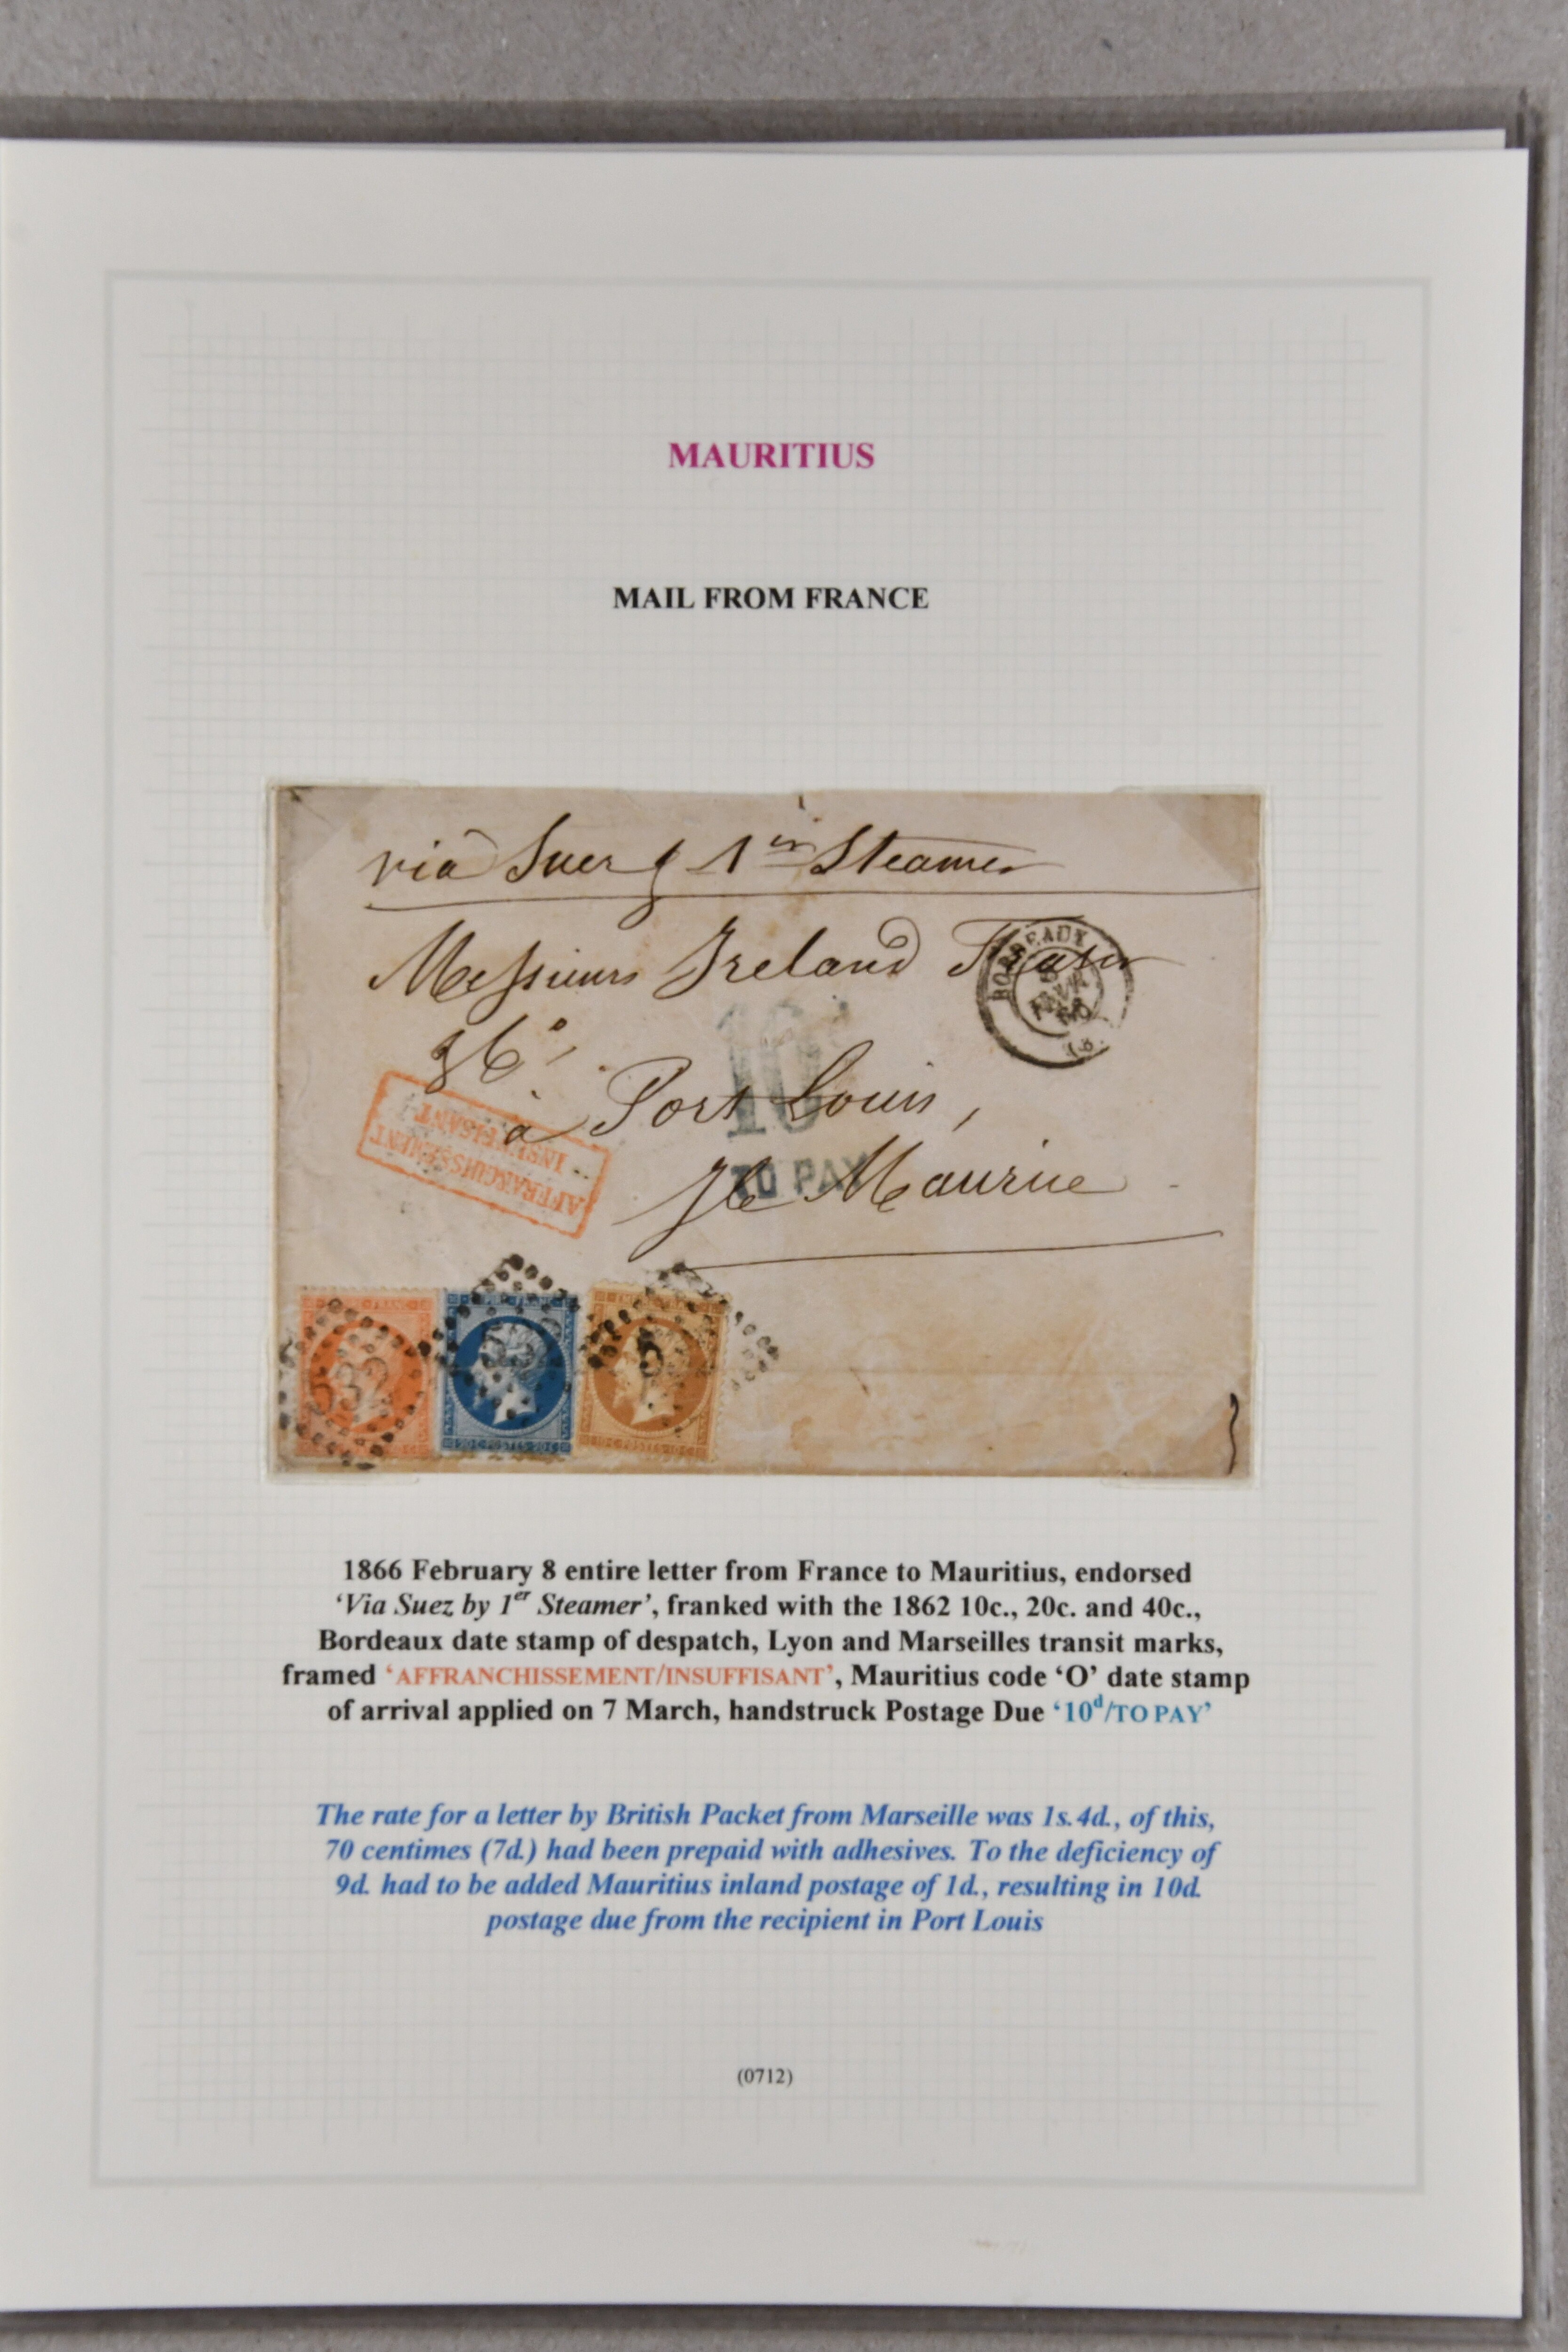 MAURITIUS
MAIL FROM FRANCE
via Suez & 1er Steamer
Messieurs Ireland Fraser
& Co
à Port Louis,
Ile Maurice
BORDEAUX
10
TO PAY
AFFRANCHISSEMENT
INSUFFISANT
532
20 C POSTES 20 C
1866 February 8 entire letter from France to Mauritius, endorsed
‘Via Suez by 1er Steamer’, franked with the 1862 10c., 20c. and 40c.,
Bordeaux date stamp of despatch, Lyon and Marseilles transit marks,
framed ‘AFFRANCHISSEMENT/INSUFFISANT’, Mauritius code ‘O’ date stamp
of arrival applied on 7 March, handstruck Postage Due ‘10d/TO PAY’
The rate for a letter by British Packet from Marseille was 1s.4d., of this,
70 centimes (7d.) had been prepaid with adhesives. To the deficiency of
9d. had to be added Mauritius inland postage of 1d., resulting in 10d.
postage due from the recipient in Port Louis
(0712)